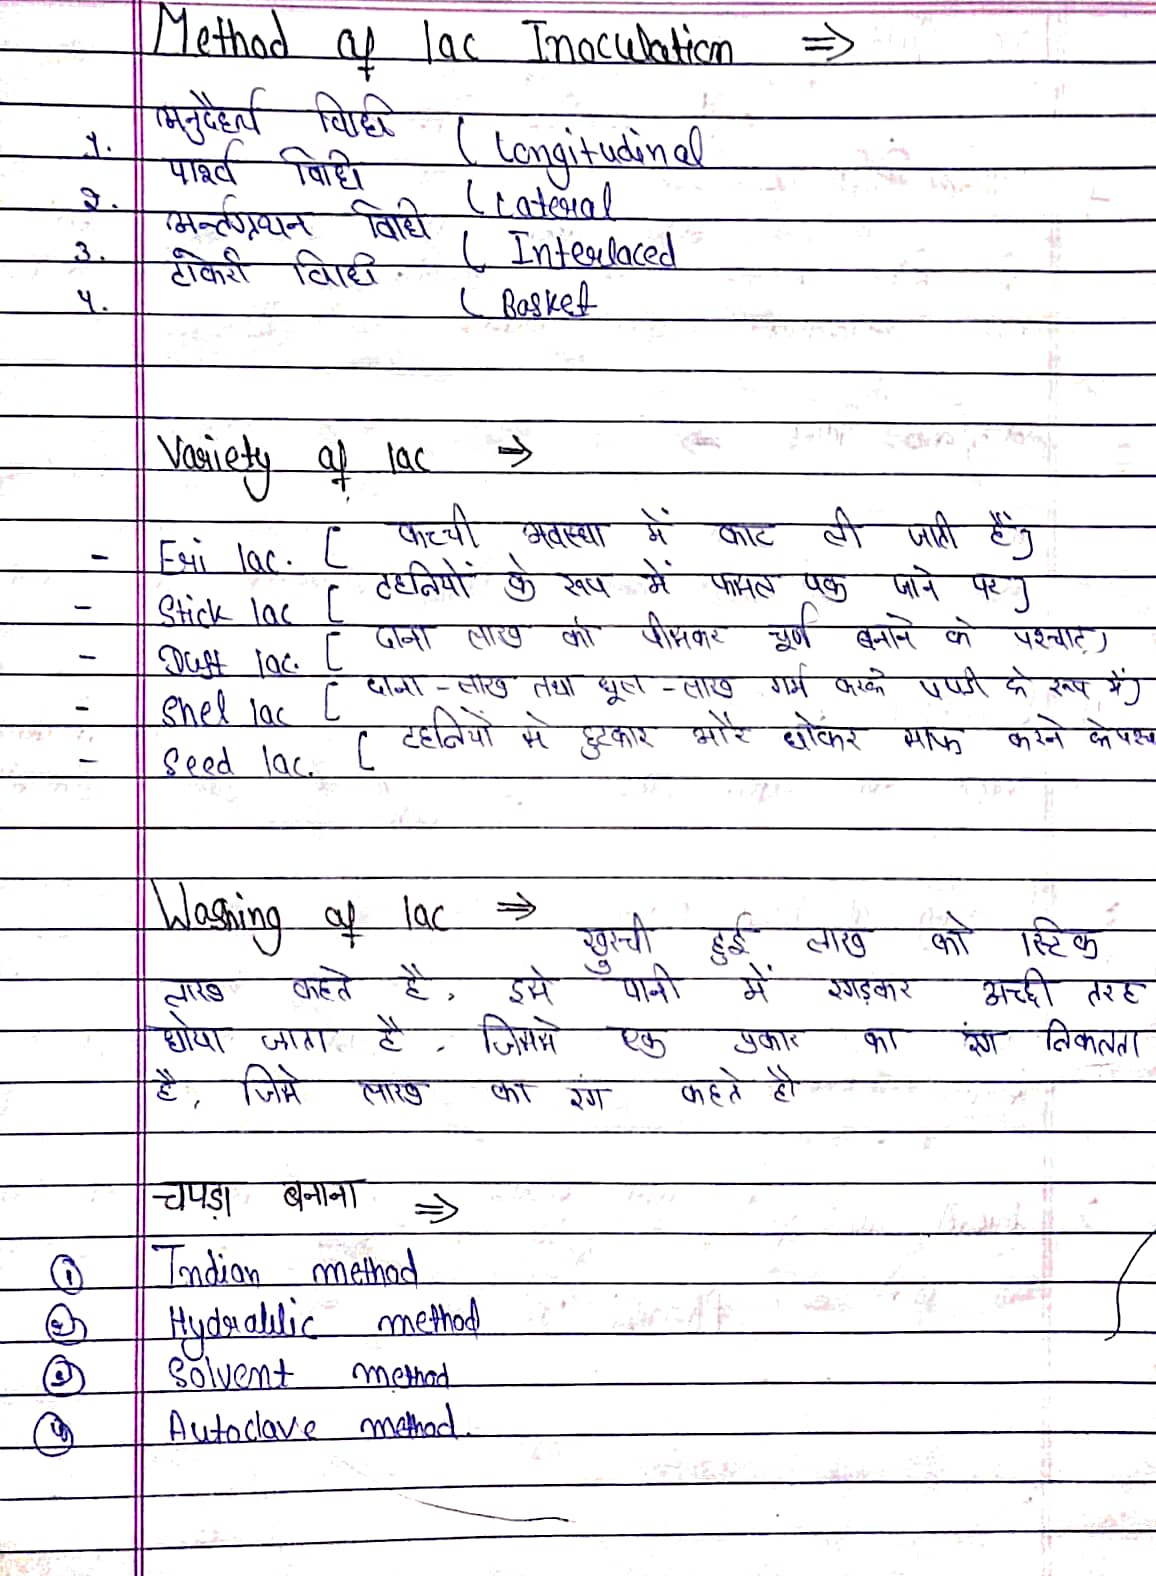 Method of lac Inoculation ⇒
1. अनुदैर्ध्य विधि ( Longitudinal
2. पार्श्व विधि ( Lateral
3. अर्न्तग्रथन विधि ( Interlaced
4. टोकरी विधि. ( Basket
Variety of lac ⇒
- Eri lac. [ कच्ची अवस्था में काट ली जाती हैं]
- Stick lac [ टहनियों के रूप में फसल पक जाने पर]
- Dust lac. [ दाना लाख को पीसकर चूर्ण बनाने के पश्चात)
- Shel lac [ दाना-लाख तथा धूल-लाख गर्म करके पपड़ी के रूप में)
- Seed lac. [ टहनियों से छुटकार और धोकर साफ करने के पश्च
Washing of lac ⇒ खुरची हुई लाख को स्टिक
लाख कहते है, इसे पानी में रगड़कर अच्छी तरह
धोया जाता है, जिससे एक प्रकार का रंग निकलता
है, जिसे लाख का रंग कहते है
चपड़ा बनाना ⇒
① Indian method
② Hydraulic method
③ Solvent method
④ Autoclave method.